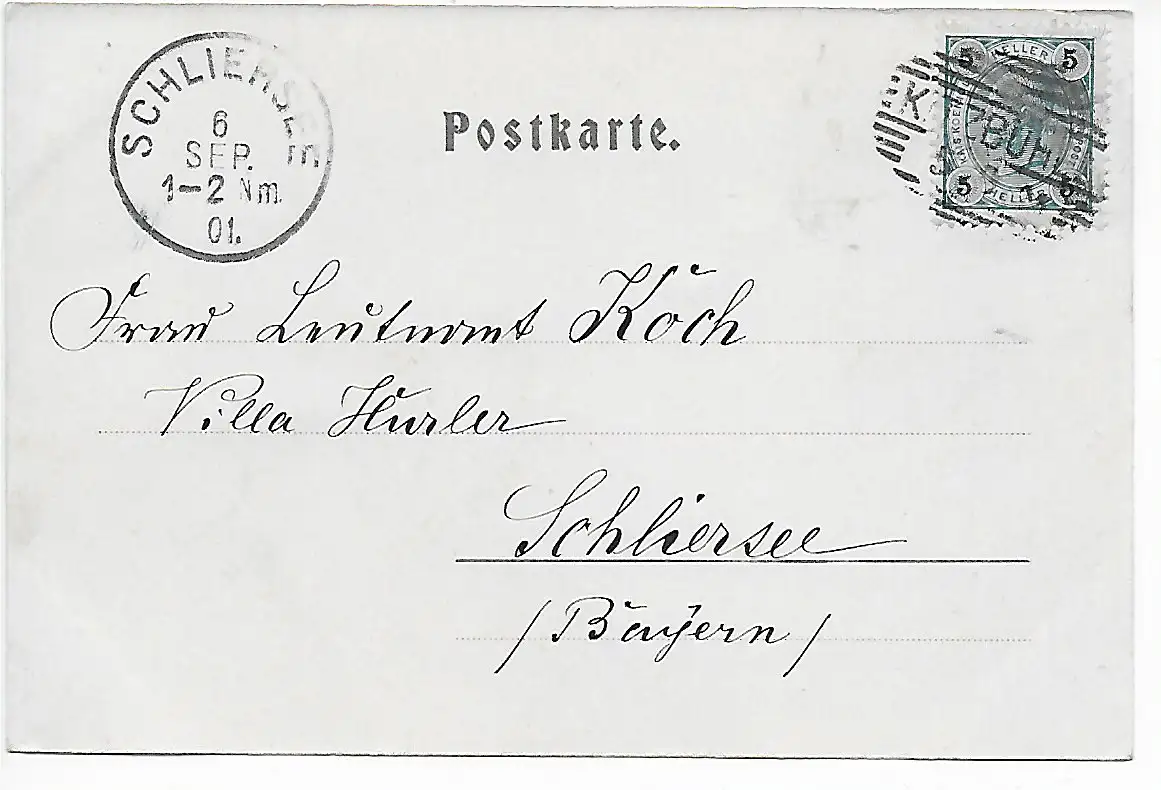 SCHLIERSEE
6
SEP.
1-2 Nm.
01.
Postkarte.
5 HELLER 5
KAIS. KOENIGL. POST
5 HELLER 5
Frau Leutnamt Koch
Villa Hurler
Schliersee
/Bayern/